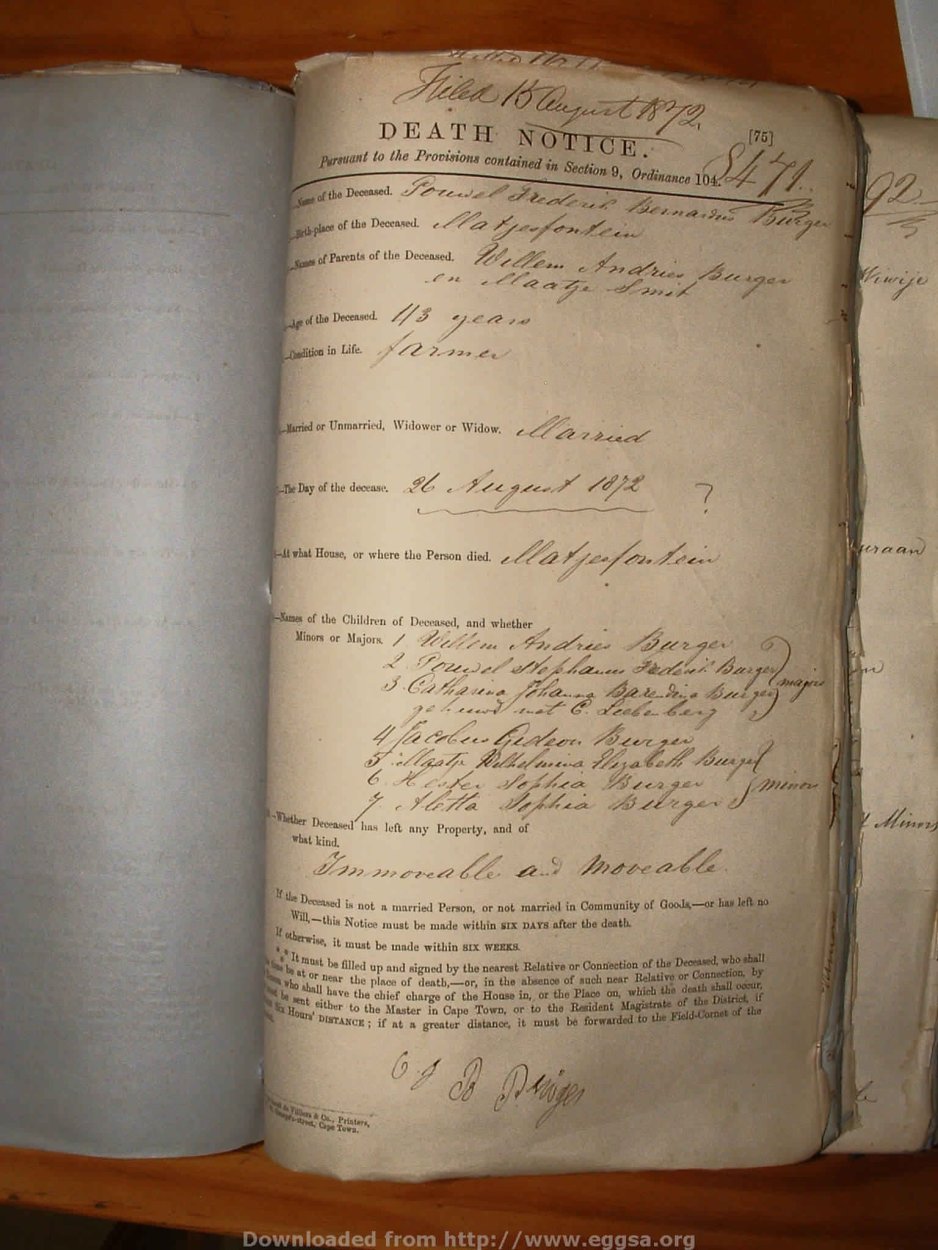 Filed 15 August 1872.
DEATH NOTICE. [75]
Pursuant to the Provisions contained in Section 9, Ordinance 104. 8471.
Name of the Deceased. Pouwel Frederik Bernardus Burger
Birth-place of the Deceased. Matjesfontein
Names of Parents of the Deceased. Willem Andries Burger
en Maatje Smit
Age of the Deceased. 43 years
Condition in Life. farmer
Married or Unmarried, Widower or Widow. Married
The Day of the decease. 26 August 1872 ?
At what House, or where the Person died. Matjesfontein
Names of the Children of Deceased, and whether
Minors or Majors. 1 Willem Andries Burger
2 Pouwel Stephanus Frederik Burger
3 Catharina Johanna Barendina Burger majors
met C. Liebenberg
4 Jacobus Gideon Burger
5 Maatje Wilhelmina Elizabeth Burger
6 Hester Sophia Burger minors
7 Aletta Sophia Burger
Whether Deceased has left any Property, and of
what kind.
Immoveable and Moveable.
If the Deceased is not a married Person, or not married in Community of Goods,—or has left no
Will,—this Notice must be made within SIX DAYS after the death.
If otherwise, it must be made within SIX WEEKS.
*** It must be filled up and signed by the nearest Relative or Connection of the Deceased, who shall
be at or near the place of death,—or, in the absence of such near Relative or Connection, by
who shall have the chief charge of the House in, or the Place on, which the death shall occur,
be sent either to the Master in Cape Town, or to the Resident Magistrate of the District, if
SIX HOURS' DISTANCE; if at a greater distance, it must be forwarded to the Field-Cornet of the
C J B Burger
de Villiers & Co., Printers,
Cape Town.
92
Minors
Downloaded from http://www.eggsa.org